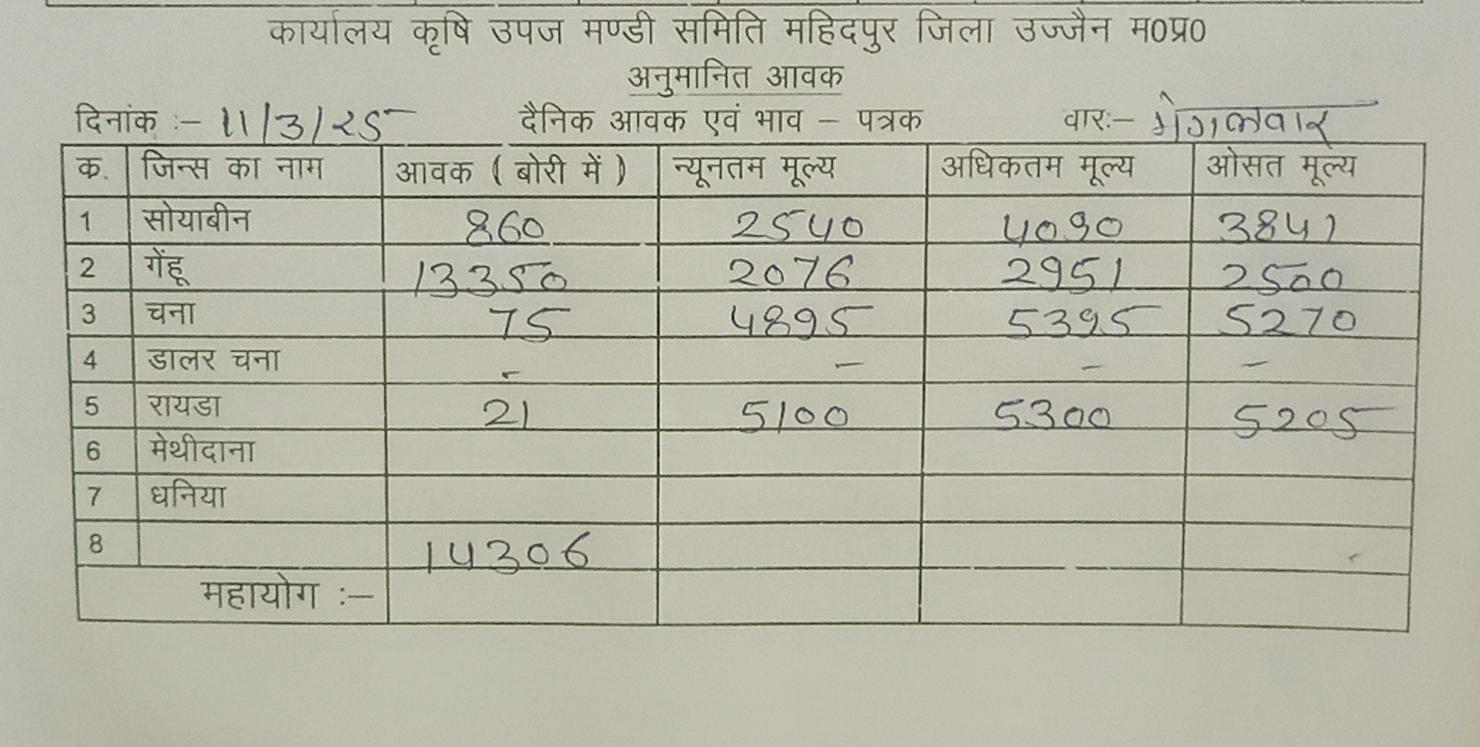 कार्यालय कृषि उपज मण्डी समिति महिदपुर जिला उज्जैन म0प्र0
अनुमानित आवक
दिनांक :– 11/3/25 दैनिक आवक एवं भाव – पत्रक वारः– मंगलवार
क. जिन्स का नाम आवक ( बोरी में ) न्यूनतम मूल्य अधिकतम मूल्य ओसत मूल्य
1 सोयाबीन 860 2540 4090 3841
2 गेंहू 13350 2076 2951 2500
3 चना 75 4895 5395 5270
4 डालर चना - - - -
5 रायडा 21 5100 5300 5205
6 मेथीदाना
7 धनिया
8 14306
महायोग :–